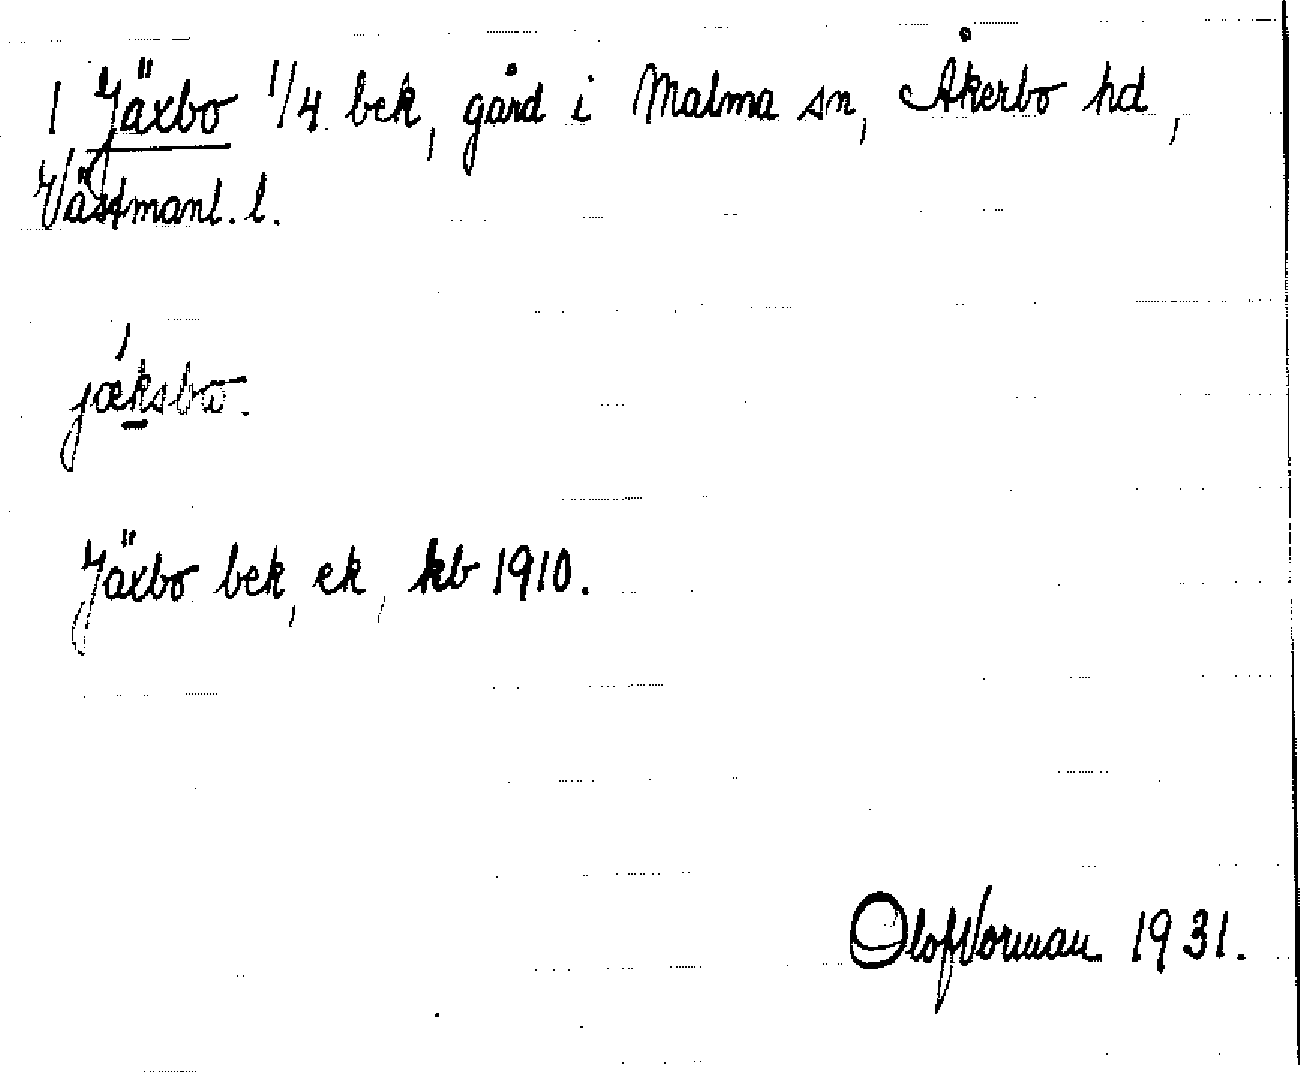 1 Jäxbo 1/4 bek, gård i Malma sn, Åkerbo hd,
Västmanl. l.
jæksbω.
Jäxbo bek, ek, kb 1910.
Olof Vorman 1931.